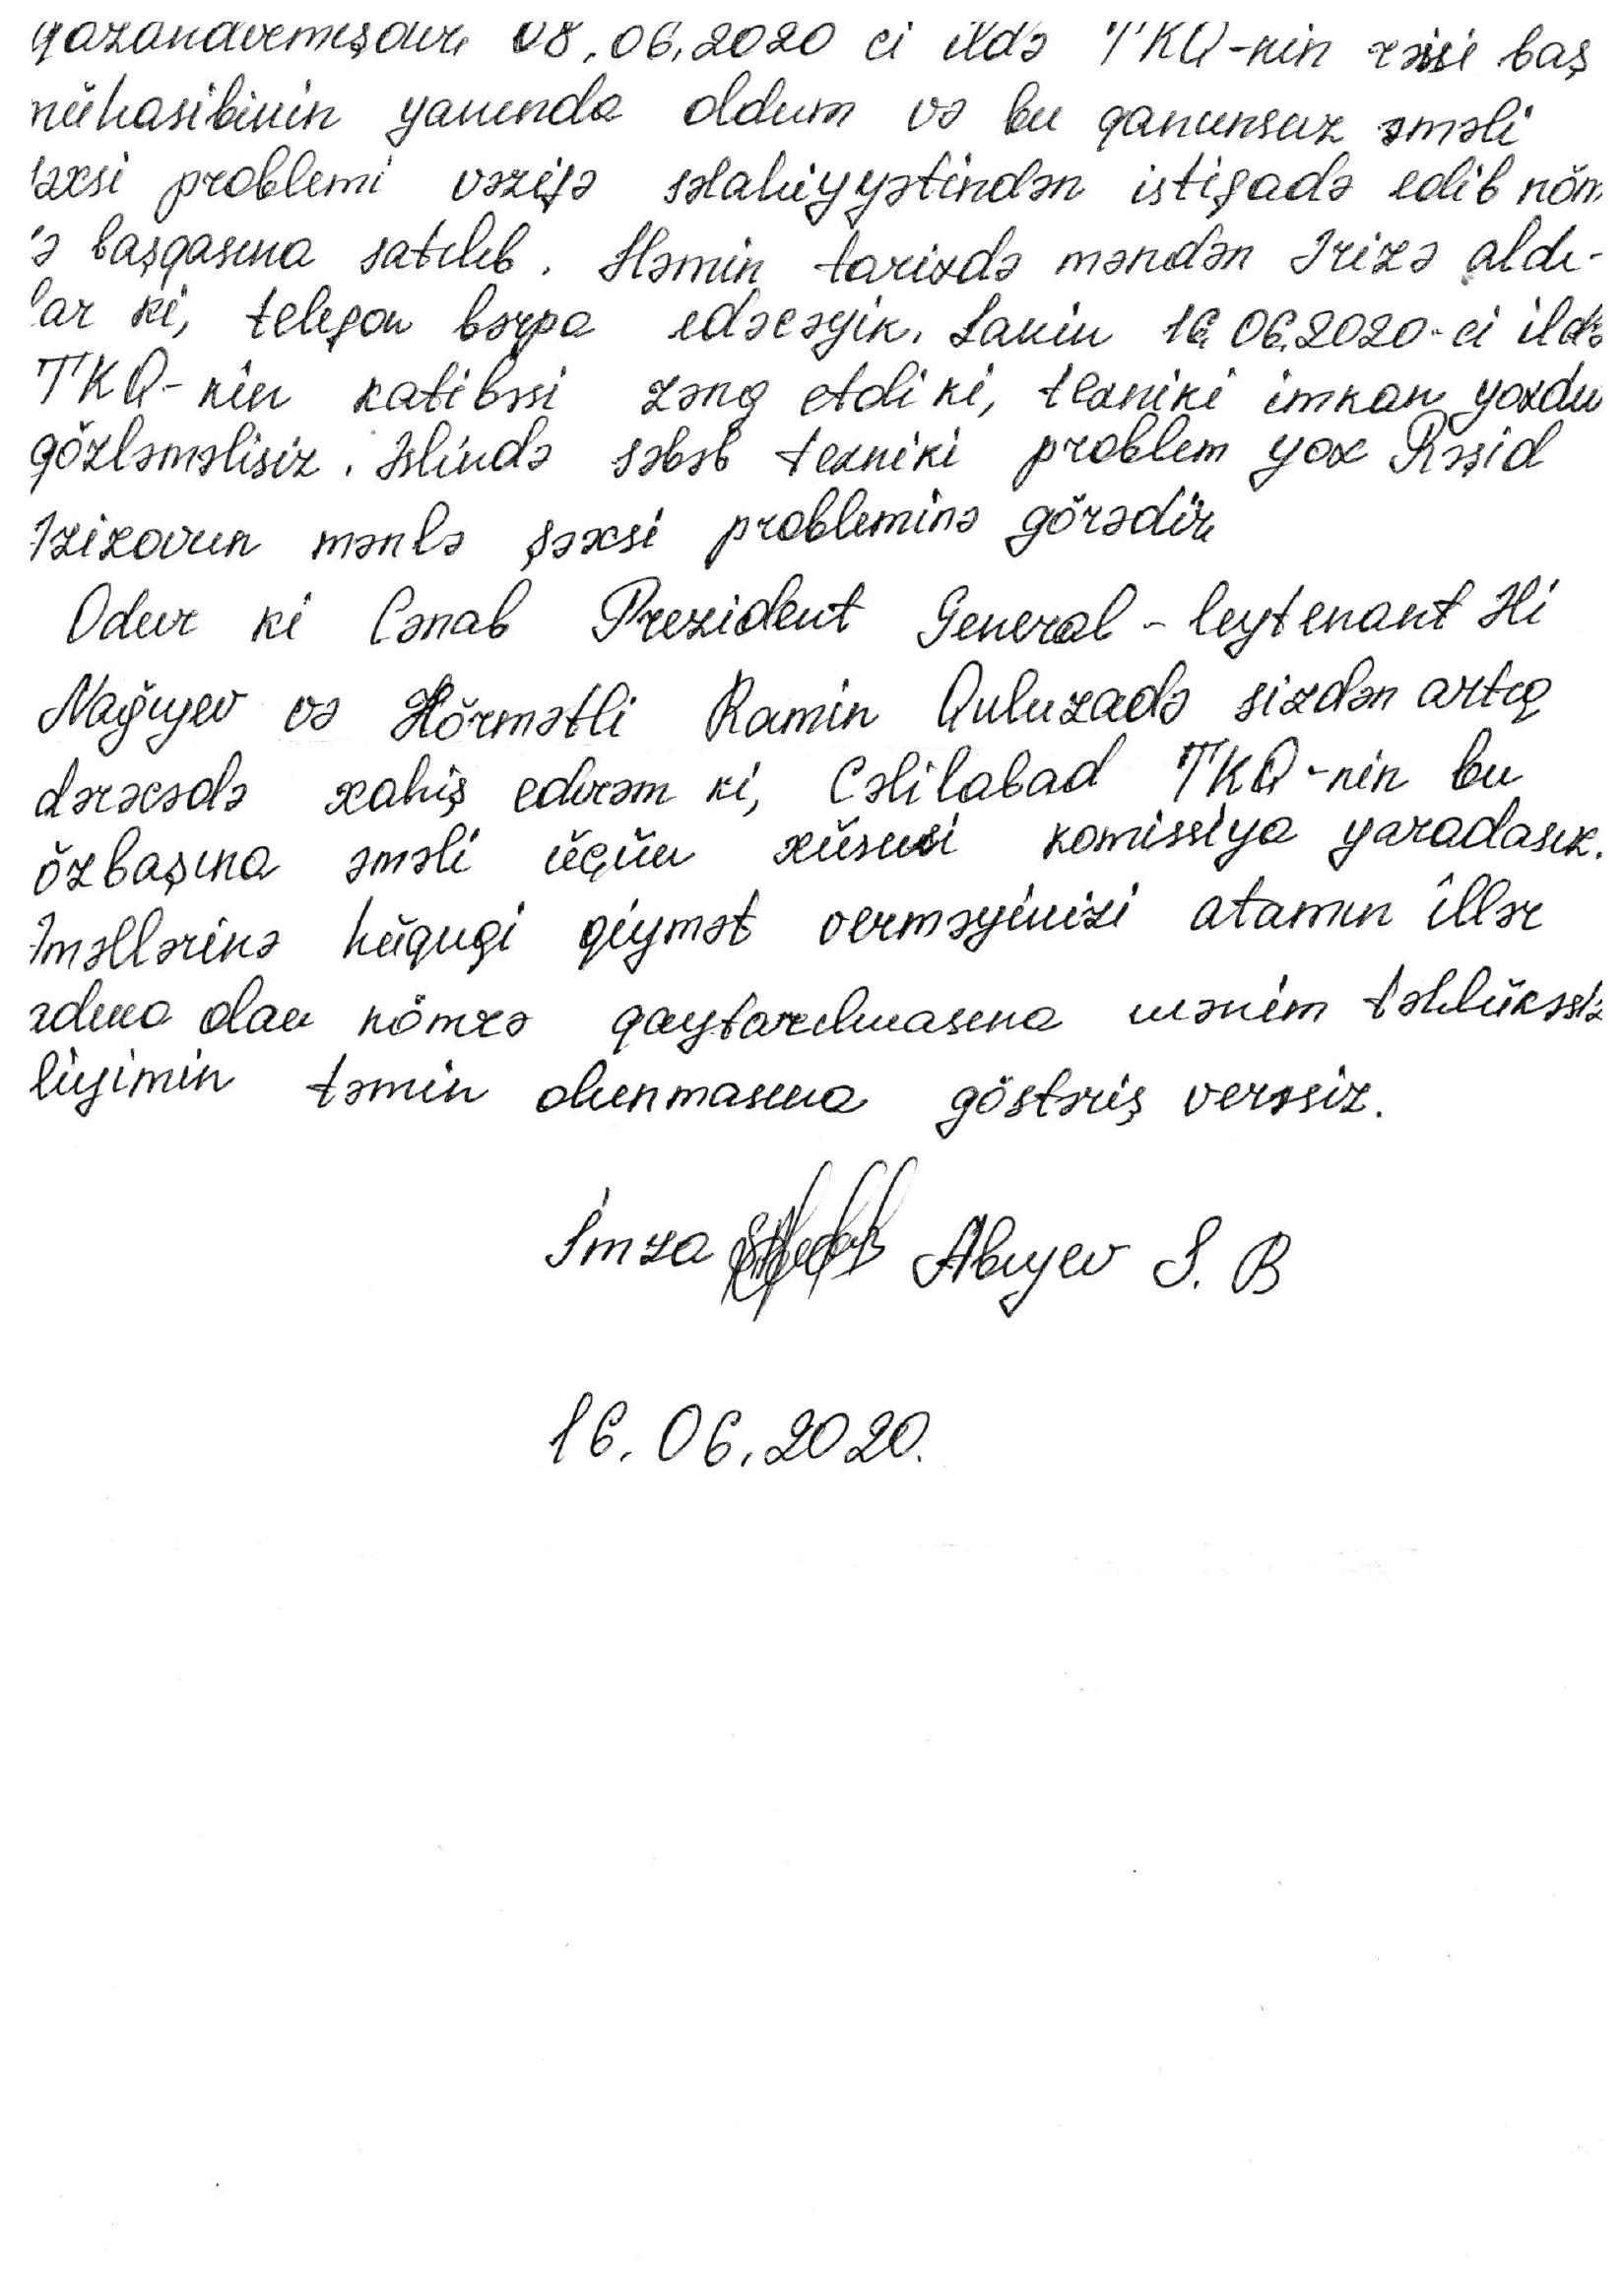 qazandırmışdır, 08.06.2020 ci ildə TKQ-nin rəisi baş
mühasibinin yanında oldum və bu qanunsuz əməli
şəxsi problemi vəzifə səlahiyyətindən istifadə edib nöm
rə başqasına satılıb. Həmin tarixdə məndən Ərizə aldı-
lar ki, telefon bərpa edəcəyik. Lakin 16.06.2020-ci ildə
TKQ-nin katibəsi zəng etdi ki, texniki imkan yoxdu
gözləməlisiz. Əslində səbəb texniki problem yox Rəşid
Əzizovun mənlə şəxsi probleminə görədir.
Odur ki Cənab Prezident General-leytenant Əli
Nağıyev və Hörmətli Ramin Quluzadə sizdən artıq
dərəcədə xahiş edirəm ki, Cəlilabad TKQ-nin bu
özbaşına əməli üçün xüsusi komissiya yaradasız.
Əməllərinə hüquqi qiymət verməyinizi atamın illər
adına olan nömrə qaytarılmasına mənim təhlükəsiz
liyimin təmin olunmasına göstəriş verəsiz.
İmza Abıyev S. B
16.06.2020.